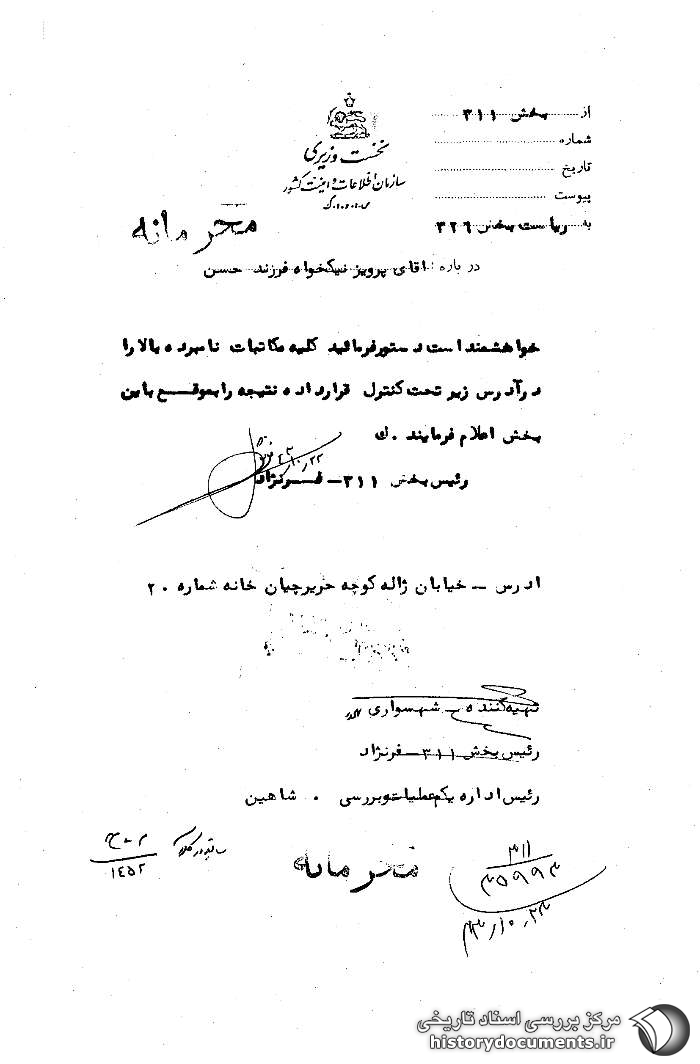 از بخش ۳۱۱
شماره
تاریخ
پیوست
به ریاست بخش ۳۲۶
نخست وزیری
سازمان اطلاعات و امنیت کشور
س.ا.و.ا.ک
محرمانه
درباره : اقای پرویز نیکخواه فرزند حسن
خواهشمند است دستور فرمائید کلیه مکاتبات نامبرده بالا را
در آدرس زیر تحت کنترل قرار داده نتیجه را بموقع باین
بخش اعلام فرمایند . ك
رئیس بخش ۳۱۱ – فرنژاد
ادرس – خیابان ژاله کوچه حریرچیان خانه شماره ۲۰
تهیه کننده – شهسواری
رئیس بخش ۳۱۱ – فرنژاد
رئیس اداره یکم عملیات و بررسی . شاهین
محرمانه
۳۱۱
۳۵۹۹۳
۴۳/۱۰/۲۳
۱۴۵۲
مرکز بررسی اسناد تاریخی
historydocuments.ir